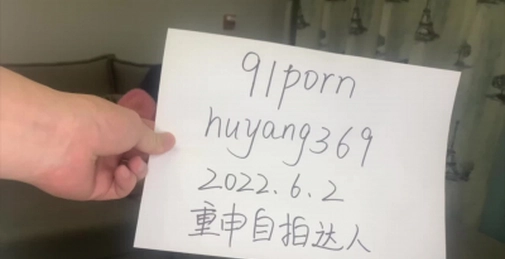 91porn
huyang369
2022.6.2
重申自拍达人